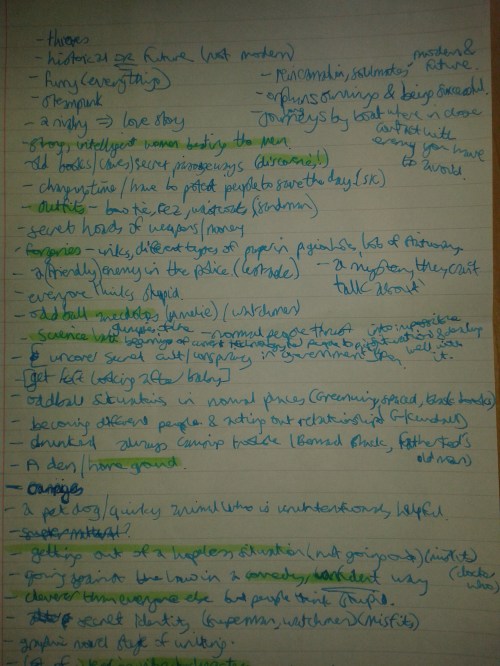 - thieves
- historical or future (not modern)
modern & future.
- funny (everything)
- reincarnation, soulmates
- steampunk
- orphans winning & being successful
- rivalry => love story
- Journeys by boat where in close contact with enemy you have to avoid.
- strong, intelligent women beating the men.
- old books/caves/secret passageways (discovering!)
- changing time / have to protect people to save the day (SK)
- outfits - bow tie, fez, waistcoats (sandman)
- secret hoards of weapons/money
- forgeries - inks, different types of paper in pigeonholes, lots of stationary
- a (friendly) enemy in the police. (Lestrade)
- a mystery they can't talk about
- everyone thinks stupid.
- oddball (amelie) / watchmen
- Science
- normal people thrust into impossible situations & coping well with it.
- uncover secret cult/conspiracy in government
- [get left looking after baby]
- oddball situations in normal places (Greenwing, spaced, black books)
- becoming different people & acting out relationships
- drunkard always causing trouble (Bernard Black, Father Ted's old man)
- A den/home ground.
- a pet dog/quirky animal who is unintentionally helpful.
- supernatural?
- getting out of a hopeless situation (not going out) (misfits)
- going against the law in a comedy, confident way (doctor who)
- cleverer than everyone else but people think stupid.
- secret identity (superman, watchmen) (misfits)
- graphic novel style of writing.
- lot of